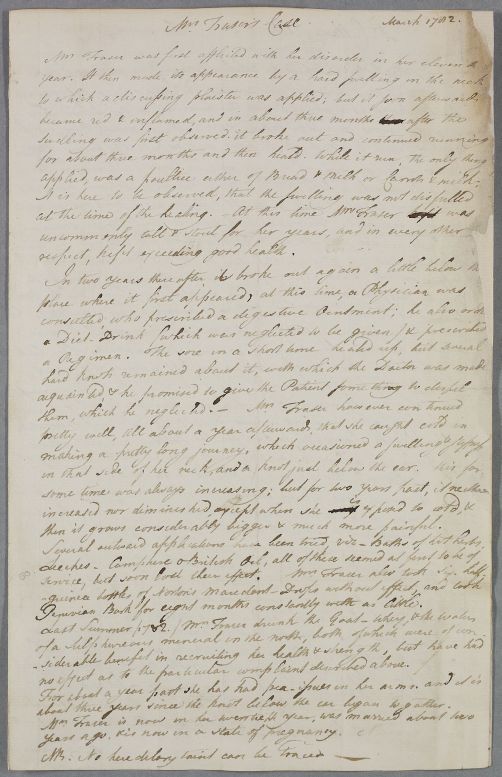 Mrs Fraser's Case
March 1782.
Mrs Fraser was first afflicted with her disorder in her eleventh
year. It then made its appearance by a hard swelling in the neck
to which a discussing plaister was applied; but it soon afterwards
became red & inflamed, and in about three months after the
swelling was first observed it broke out and continued running
for about three months and then heal'd. While it run, the only thing
applied, was a poultice either of Bread & milk or Carrots & milk.
It is here to be observed, that the swelling was not dispelled
at the time of the healing. At this time Mrs Fraser was
uncommonly tall & stout for her years, and in every other
respect, kept exceeding good health.
In two years thereafter it broke out again a little below the
place where it first appeared; at this time, a Physician was
consulted who prescribed a digestive Ointment; he also order
a Diet-Drink (which was neglected to be given) & prescribed
a Regimen. The sore in a short time heal'd up, but several
hard knots remained about it, with which the Doctor was made
aquainted & he promised to give the Patient something to dispel
them, which he neglected. — Mrs Fraser however continued
pretty well, till about a year afterward, that she caught cold in
making a pretty long journey, which occasioned a swelling &
in that side of her neck, and a knot just below the ear. this for
some time was always increasing; but for two years past, it neither
increased nor diminished except when she is exposed to cold &
then it grows considerably bigger & much more painful.
Several outward applications have been tried, viz - Baths of hot herbs,
Leeches - Camphire & British Oil, all of these seemed at first to be of
service, but soon lost their effect. Mrs Fraser also took six half-
guinea bottles of Norton's Maredant-Drops without effect, and took
Peruvian Bark for eight months constantly with as little.
Last Summer Mrs Fraser drank the Goat-whey, & the waters
of a Sulphureous mineral in the north, both of which were of con
siderable benefit in recruiting her health & strength, but have had
no effect as to the particular complaints described above.
For about a year past she has had pea-issues in her arms. and it is
about three years since the knot below the ear began to gather.
Mrs Fraser is now in her twentieth year, was married about two
years ago. & is now in a state of Pregnancy.
NB. No hereditary taint can be traced —